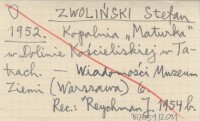 ZWOLIŃSKI Stefan
1952. Kopalnia „Maturka"
w Dolinie Kościeliskiej w Ta-
trach. — Wiadomości Muzeum
Ziemi (Warszawa) 6.
Rec.: Reychman J. 1954 b.